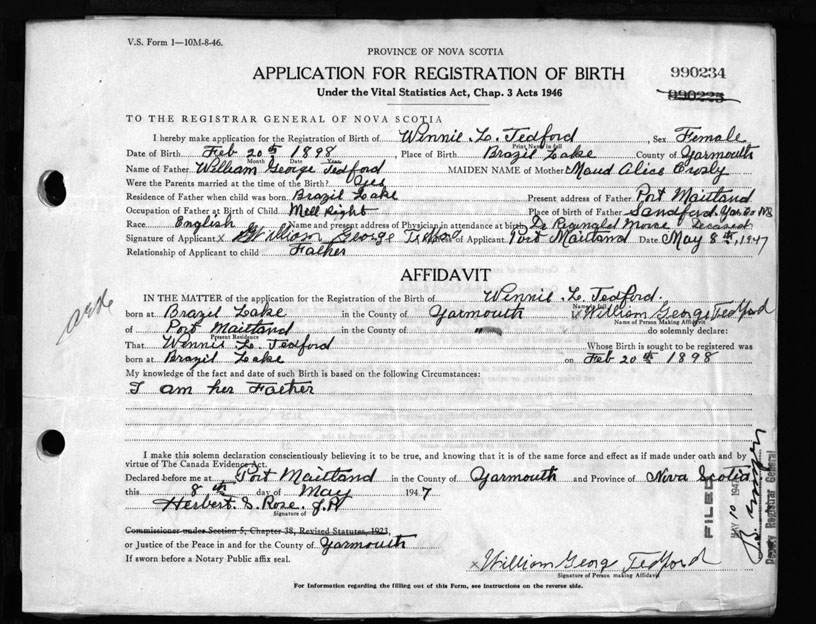 V.S. Form 1—10M-8-46.
PROVINCE OF NOVA SCOTIA
APPLICATION FOR REGISTRATION OF BIRTH
990234
Under the Vital Statistics Act, Chap. 3 Acts 1946
990225
TO THE REGISTRAR GENERAL OF NOVA SCOTIA
I hereby make application for the Registration of Birth of Winnie L. Tedford, Sex Female
Print Name in full
Date of Birth Feb 20th 1898 Place of Birth Brazil Lake County of Yarmouth
Month Date Year
Name of Father William George Tedford MAIDEN NAME of Mother Maud Alice Crosby
Were the Parents married at the time of the Birth? Yes
Residence of Father when child was born Brazil Lake Present address of Father Port Maitland
Occupation of Father at Birth of Child Mell Right Place of birth of Father Sandford Yar Co NS
Race English Name and present address of Physician in attendance at birth Dr Morse Deceased
Signature of Applicant x William George Tedford Address of Applicant Port Maitland Date May 8th, 1947
Relationship of Applicant to child Father
AFFIDAVIT
IN THE MATTER of the application for the Registration of the Birth of Winnie L. Tedford.
Name in full
born at Brazil Lake in the County of Yarmouth I, William George Tedford
Name of Person Making Affidavit
of Port Maitland in the County of " do solemnly declare:
Present Residence
That Winnie L. Tedford Whose Birth is sought to be registered was
born at Brazil Lake on Feb 20th 1898
My knowledge of the fact and date of such Birth is based on the following Circumstances:
I am her Father
I make this solemn declaration conscientiously believing it to be true, and knowing that it is of the same force and effect as if made under oath and by
virtue of The Canada Evidence Act.
Declared before me at Port Maitland in the County of Yarmouth and Province of Nova Scotia
this 8th day of May 1947
Herbert S. Rose. J.P.
Signature of
Commissioner under Section 5, Chapter 38, Revised Statutes, 1923,
or Justice of the Peace in and for the County of Yarmouth
If sworn before a Notary Public affix seal.
x William Georg Tedford
Signature of Person making Affidavit
For Information regarding the filling out of this Form, see instructions on the reverse side.
FILED
MAY 10 1947
Deputy Registrar General